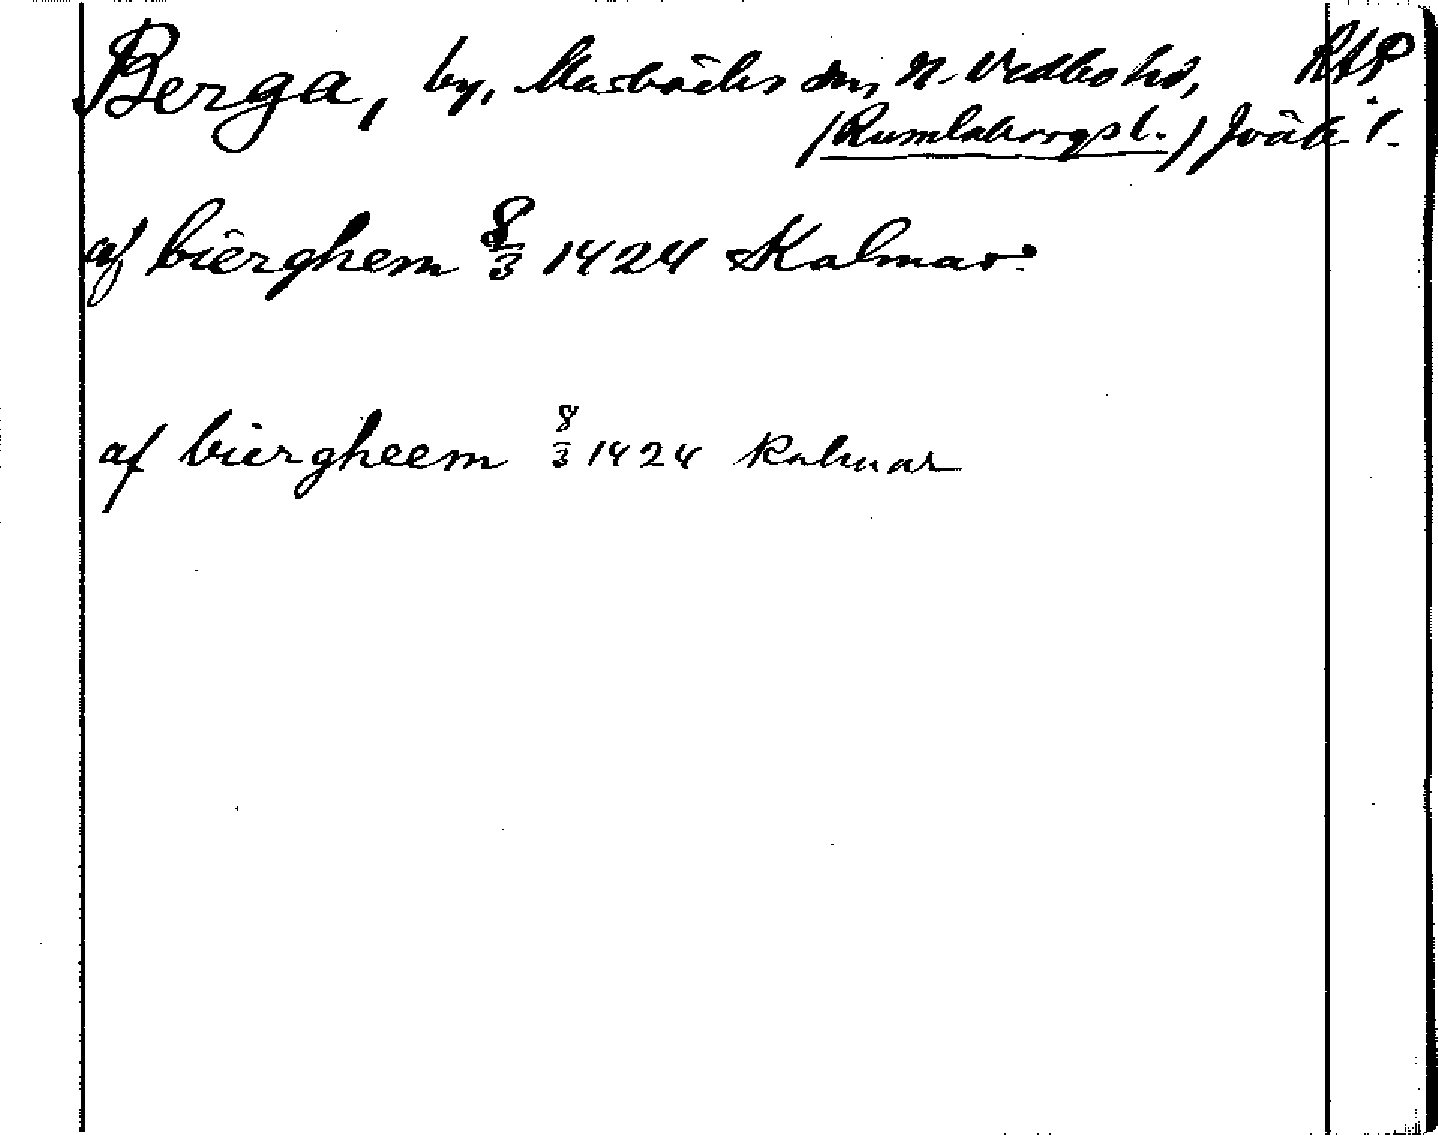 Berga, by, Marbäcks sn, N. Vedbo hd, RAP
(Rumlaborgs l.) Jönk. l.
af bierghem 8/3 1424 Kalmar.
af biergheem 8/3 1424 Kalmar